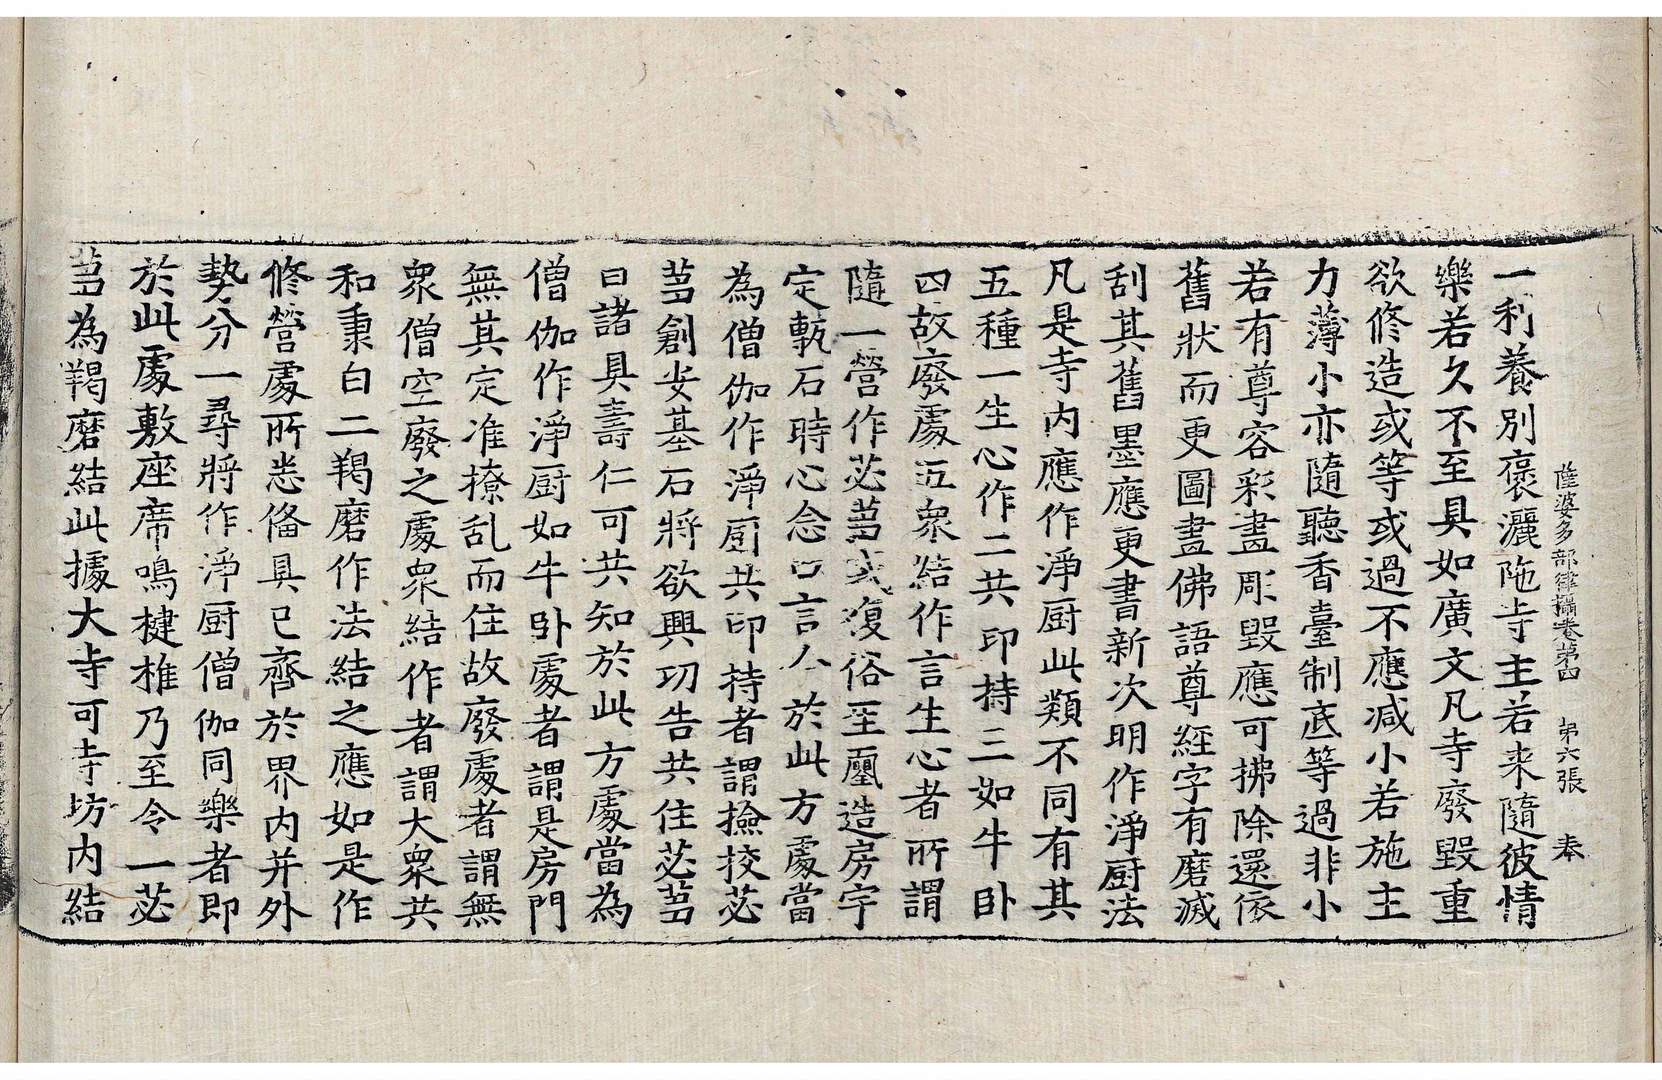 薩婆多部律攝卷第四　第六張　奉
一利養別褒灑陁寺主若来隨彼情
樂若久不至具如廣文凡寺廢毀重
欲修造或等或過不應減小若施主
力薄小亦隨聽香臺制底等過非小
若有尊容彩畫彫毀應可拂除還依
舊狀而更圖畫佛語尊經字有磨滅
刮其舊墨應更書新次明作淨厨法
凡是寺內應作淨厨此類不同有其
五種一生心作二共印持三如牛卧
四故廢處五衆結作言生心者所謂
隨一營作苾芻或復俗至爾造房宇
定甎石時心念口言今於此方處當
為僧伽作淨厨共印持者謂撿挍苾
芻創安基石將欲興功告共住苾芻
曰諸具壽仁可共知於此方處當為
僧伽作淨厨如牛卧處者謂是房門
無其定准撩乱而住故廢處者謂無
衆僧空廢之處衆結作者謂大衆共
和秉白二羯磨作法結之應如是作
修營處所悉俻具已齊於界內并外
勢分一尋將作淨厨僧伽同樂者即
於此處敷座席鳴楗椎乃至令一苾
芻為羯磨結此據大寺可寺坊內結